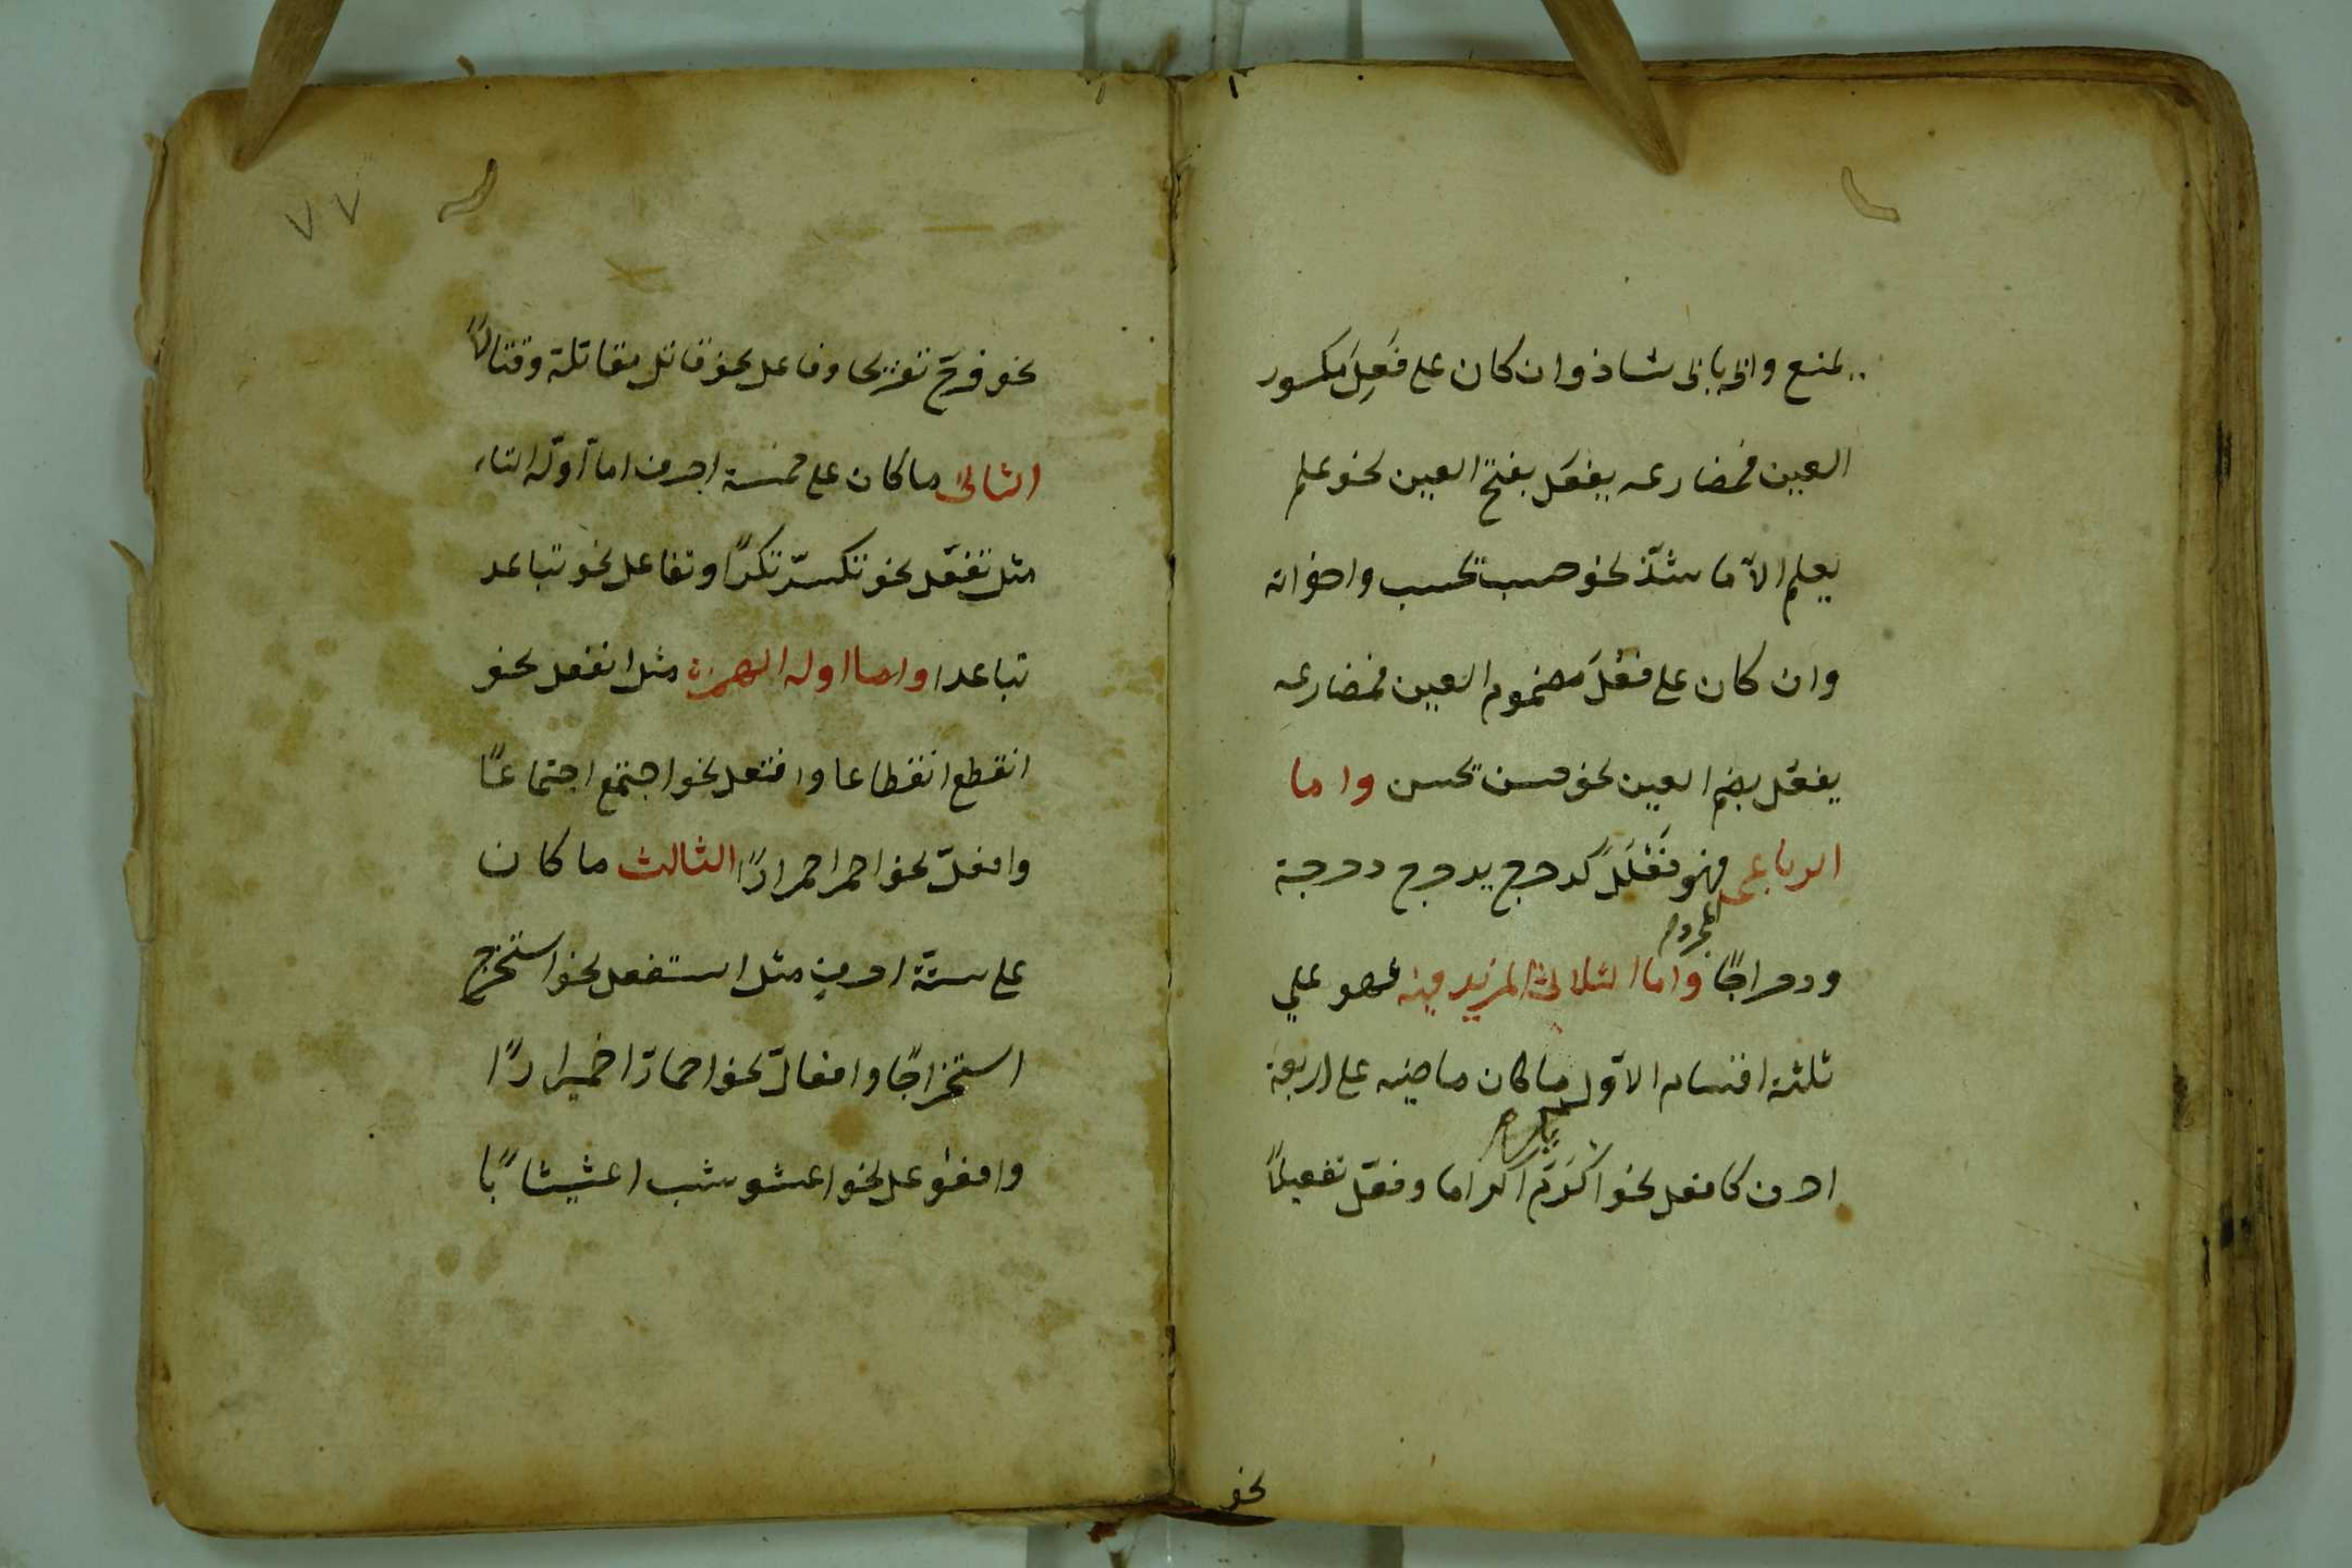 يمنع وابى يابى شاذ وان كان على فَعِلَ مكسور
العين فمضارعه يفعَل بفتح العين نحو علم
يعلم الاّ ما شذّ نحو حسب يحسب واخواته
وان كان على فعُلَ مضموم العين فمضارعه
يفعُل بضم العين نحو حسن يحسن واما
الرباعى المجرد فهو فَعْلَلَ كدحرج يدحرج دحرجة
ودحراجًا واما الثلاثى المزيد فيه فهو على
ثلثة اقسام الاوّل ما كان ماضيه على اربعة
احرف كافعل نحو اكرَم اكراما وفعّل تفعيلاً
نحو
٧٧
نحو فرّح تفريحا وفاعل نحو قاتل مقاتلة وقتالاً
الثانى ما كان على خمسة احرف اما اوّله التاء
مثل تفعّل نحو تكسّر تكسرًا وتفاعل نحو تباعد
تباعدا واما اوله الهمزة مثل انفعل نحو
انقطع انقطاعا وافتعل نحو اجتمع اجتماعًا
وافعلّ نحو احمر احمرارًا الثالث ما كان
على ستّة احرفٍ مثل استفعل نحو استخرج
استخراجًا وافعالّ نحو احمارّ احميرارًا
وافعوعل نحو اعشوشب اعشيشابًا